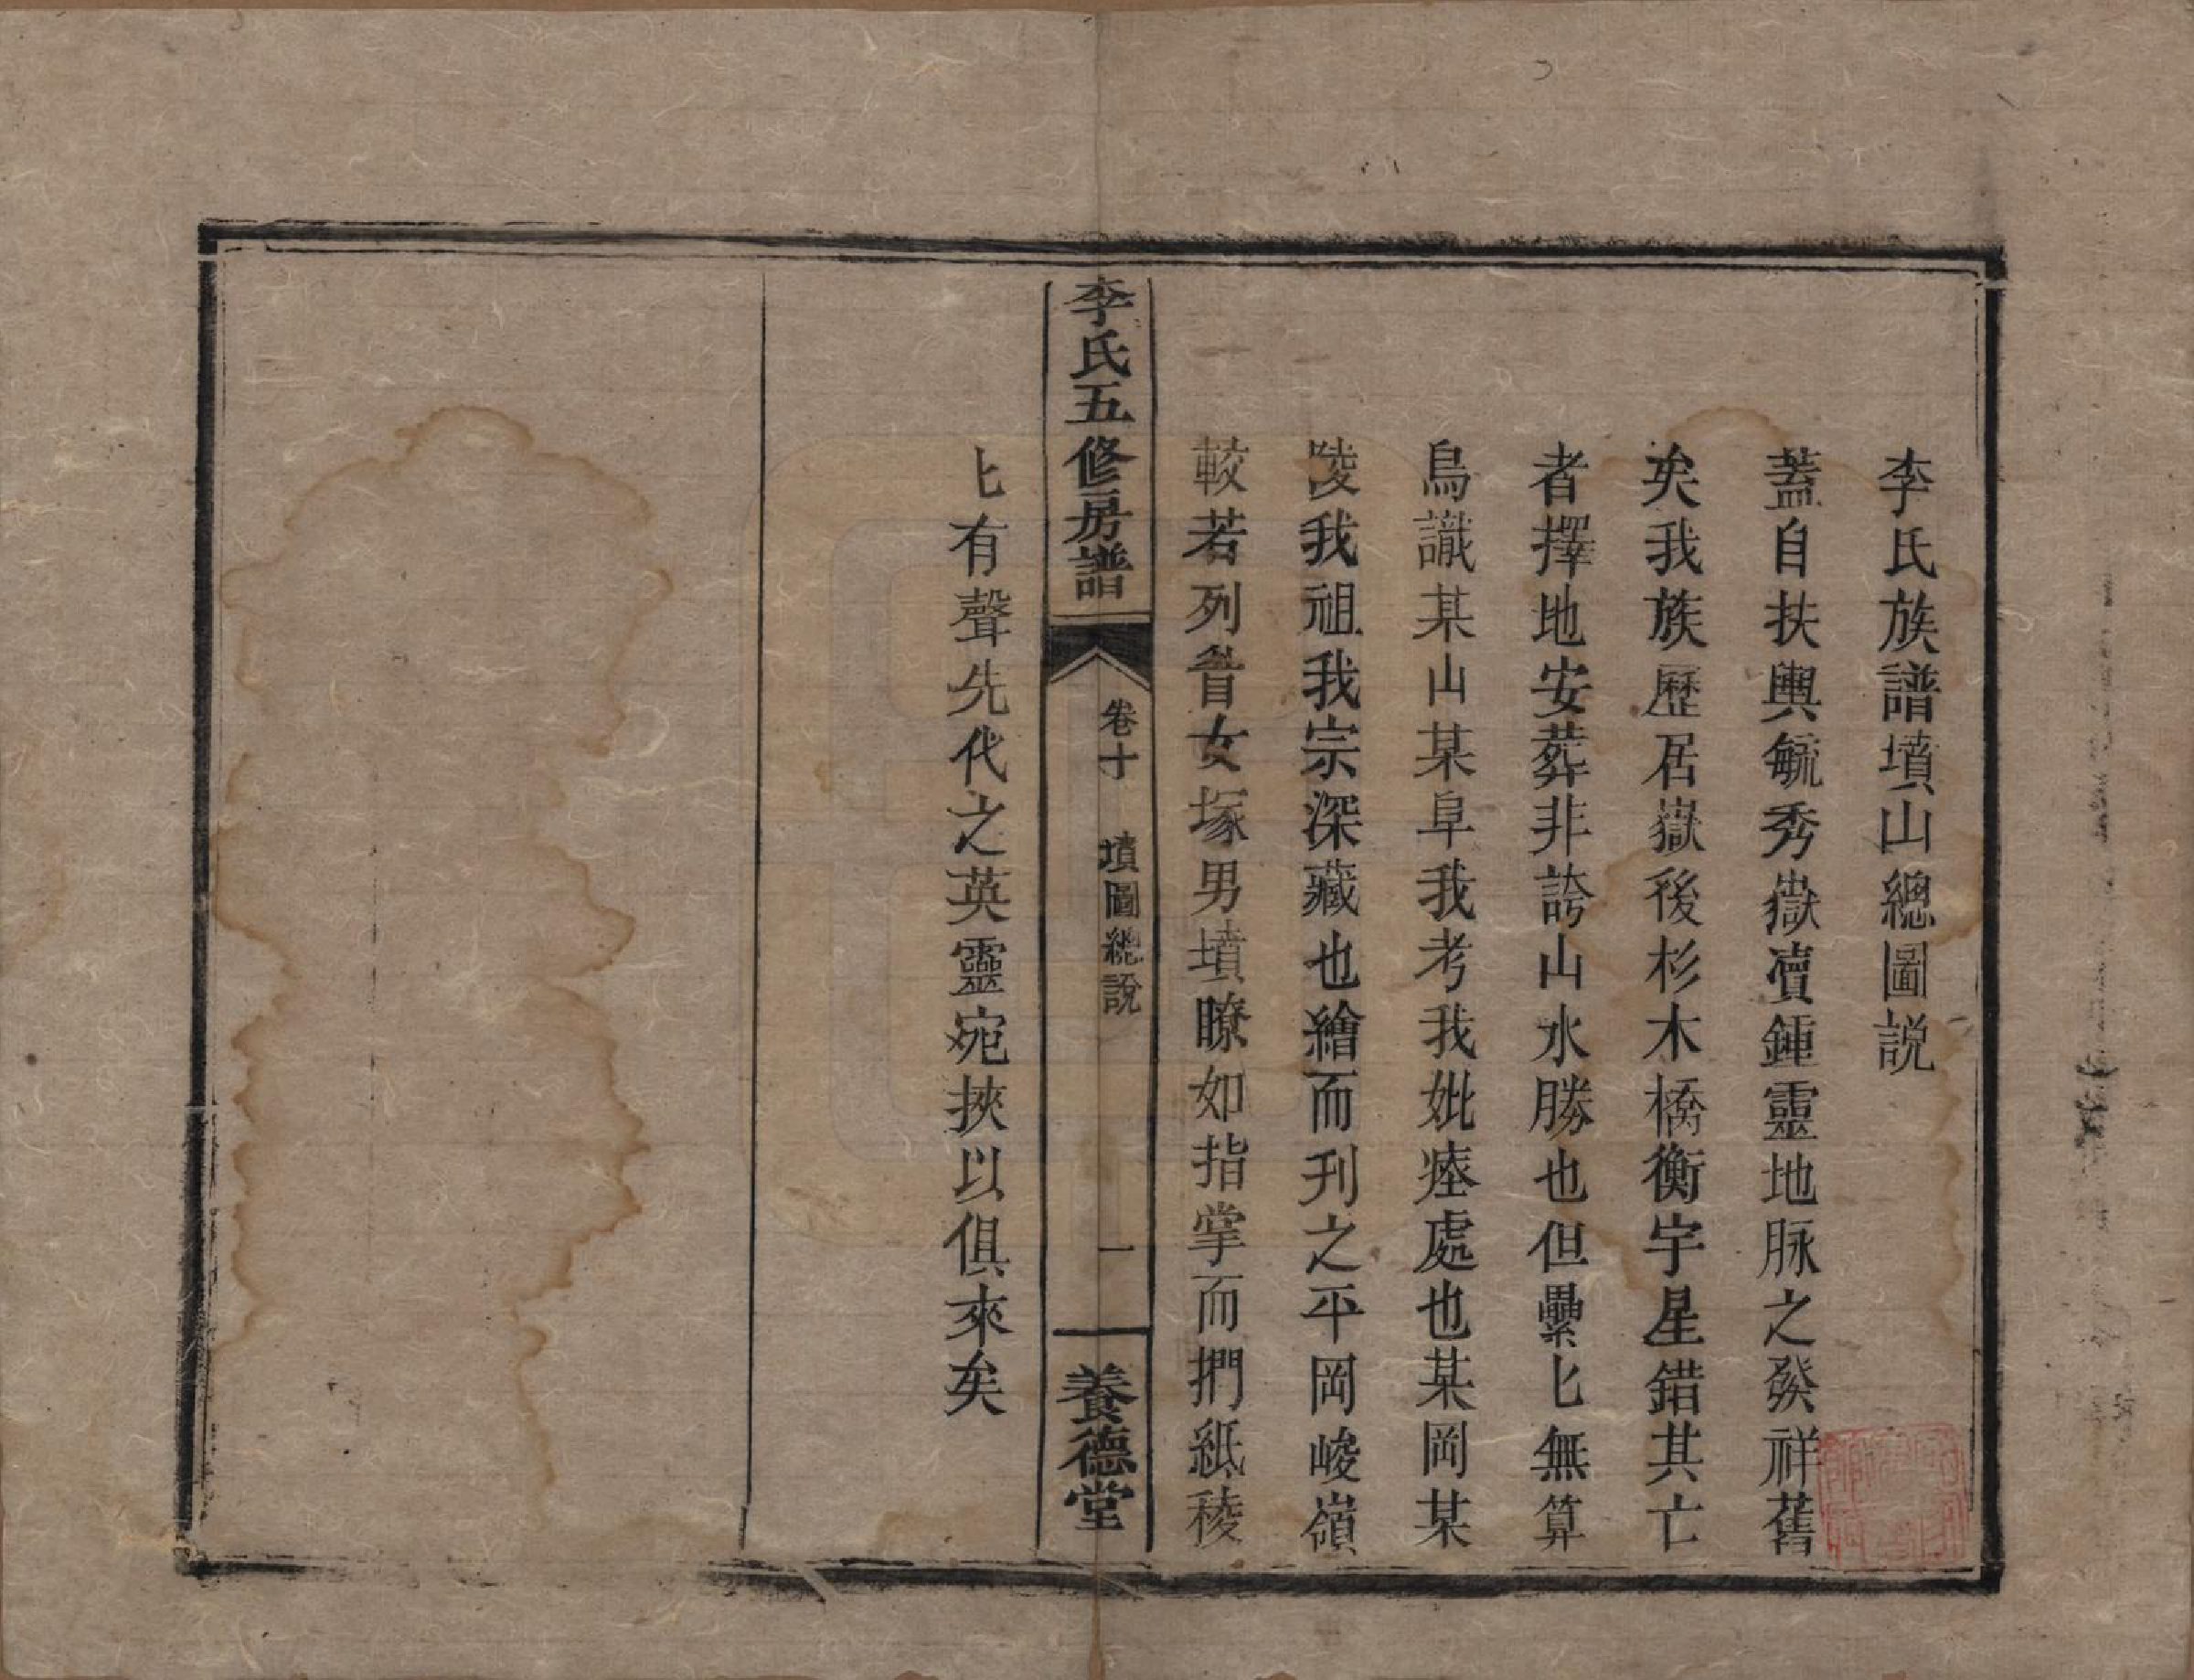 李氏族譜墳山總圖説
蓋自扶輿毓秀嶽瀆鍾靈地脉之發祥舊
矣我族歷居嶽後杉木橋衡宇星錯其亡
者擇地安葬非誇山水勝也但纍匕無算
烏識某山某阜我考我妣瘞處也某岡某
陵我祖我宗深藏也繪而刋之平岡峻嶺
較若列眉女塚男墳瞭如指掌而捫紙稜
匕有聲先代之英靈宛挾以俱來矣
李氏五修房譜
卷十 墳圖總説
一
養德堂